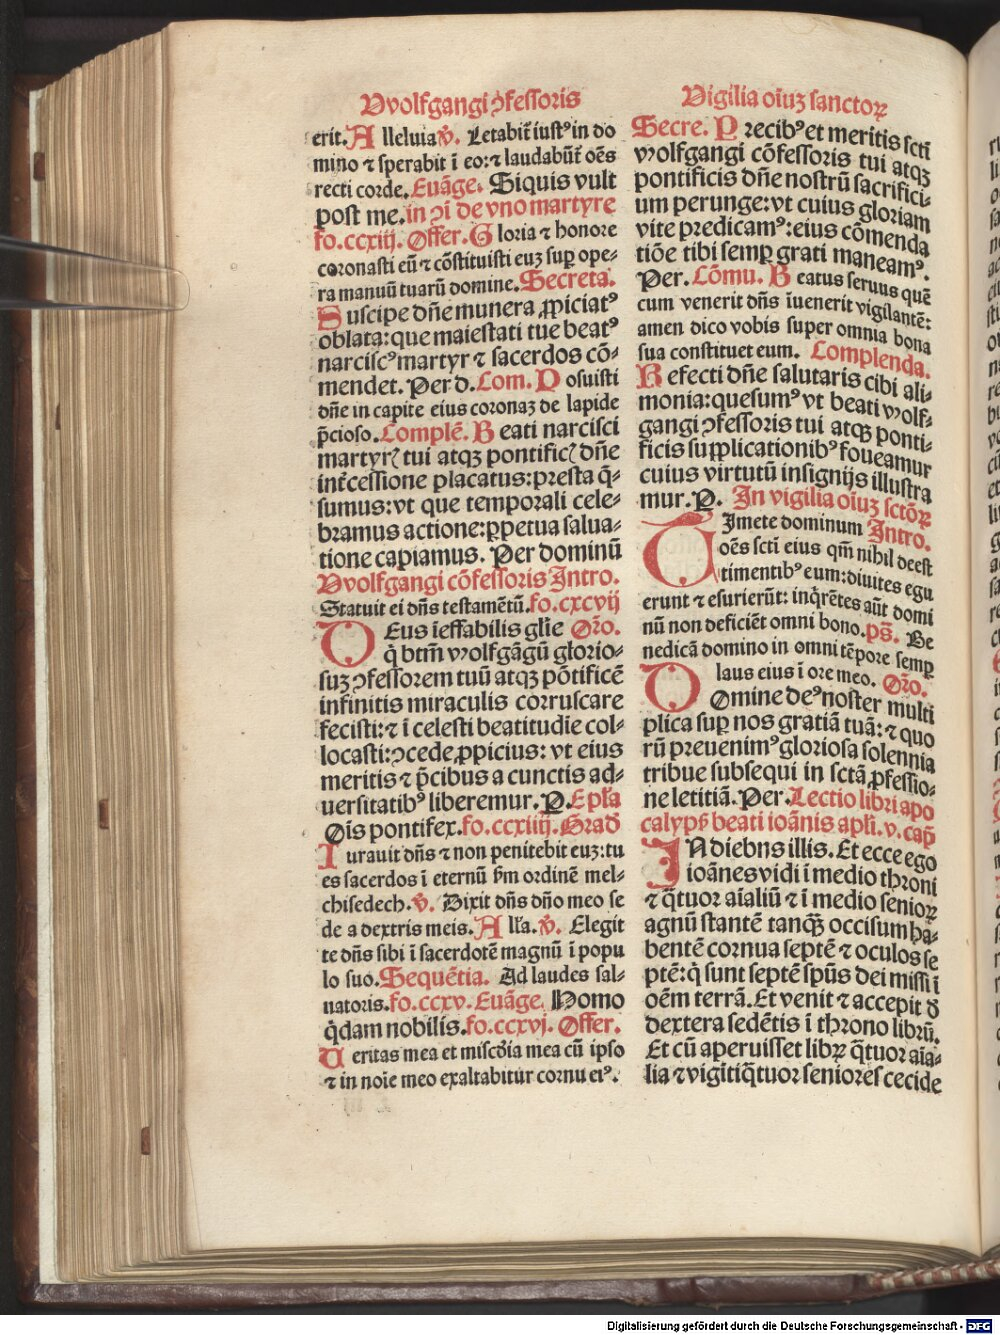 Vvolfgangi ꝯfessoris
erit. Alleluia. ℣. Letabit̃ iustꝰ in do
mino ⁊ sperabit ĩ eo: ⁊ laudabũt̃ oẽs
recti corde. Euãge. Siquis vult
post me. in ꝯĩ de vno martyre
fo. ccxiij. Offer. Gloria ⁊ honore
coronasti eũ ⁊ cõstituisti euꝫ suꝑ ope-
ra manuũ tuarũ domine. Secreta.
Suscipe dñe munera ꝓpiciatꝰ
oblata: que maiestati tue beatꝰ
narciscꝰ martyr ⁊ sacerdos cõ-
mendet. Per d. Com. Posuisti
dñe in capite eius coronaꝫ de lapide
p̃cioso. Complẽ. Beati narcisci
martyrꝭ tui atqꝫ pontificꝭ dñe
int̃cessione placatus: presta q̃-
sumus: vt que temporali cele-
bramus actione: ꝑpetua salua-
tione capiamus. Per dominũ
Vvolfgangi cõfessoris Intro.
Statuit ei dñs testamẽtũ. fo. cxcvij
DEus ineffabilis glĩe Orõ.
q̇ btm̃ vvolfgãgũ glorio-
suꝫ ꝯfessorem tuũ atqꝫ põtificẽ
infinitis miraculis corruscare
fecisti: ⁊ ĩ celesti beatitudĩe col-
locasti: ꝯcede ꝓpicius: vt eius
meritis ⁊ p̃cibus a cunctis ad-
uersitatibꝰ liberemur. P. Epl̃a
Oĩs pontifex. fo. ccxiiij. Grad̃
Iurauit dñs ⁊ non penitebit euꝫ: tu
es sacerdos ĩ eternũ ẜm ordinẽ mel-
chisedech. ℣. Dixit dñs dño meo se
de a dextris meis. All'a. ℣. Elegit
te dñs sibi ĩ sacerdotẽ magnũ ĩ popu
lo suo. Sequẽtia. Ad laudes sal-
uatoris. fo. ccxv. Euãge. Homo
q̇dam nobilis. fo. ccxvj. Offer.
Ueritas mea et misc̃dĩa mea cũ ipso
⁊ in noĩe meo exaltabitur cornu eiꝰ.
Vigilia oĩuꝫ sanctoꝝ
Secre. Precibꝰ et meritis sctĩ
vvolfgangi cõfessoris tui atqꝫ
pontificis dñe nostrũ sacrifici-
um perunge: vt cuius gloriam
vite predicamꝰ: eius cõmenda
tiõe tibi semꝑ grati maneamꝰ.
Per. Cõmu. Beatus seruus quẽ
cum venerit dñs ĩuenerit vigilantẽ:
amen dico vobis super omnia bona
sua constituet eum. Complenda.
Refecti dñe salutaris cibi ali-
monia: quesumꝰ vt beati vvolf-
gangi ꝯfessoris tui atqꝫ ponti-
ficis supplicationibꝰ foueamur
cuius virtutũ insignijs illustra
mur. P. In vigilia oĩuꝫ sctõꝝ
TImete dominum Intro.
oẽs scti eius qm̃ nihil deest
timentibꝰ eum: diuites egu
erunt ⁊ esurierũt: inq̇rẽtes aũt domi
nũ non deficiẽt omni bono. ps̃. Be
nedicã domino in omni tẽpore semꝑ
laus eius ĩ ore meo. Orõ.
DOmine deꝰ noster multi
plica suꝑ nos gratiã tuã: ⁊ quo
rũ preuenimꝰ gloriosa solennia
tribue subsequi in sctã ꝓfessio-
ne letitiã. Per. Lectio libri apo
calypẜ beati ioãnis apl̃i. v. cap̃
IN diebus illis. Et ecce ego
ioãnes vidi ĩ medio throni
⁊ q̃tuor aĩaliũ ⁊ ĩ medio senioꝝ
agnũ stantẽ tanq̃ꝫ occisum ha-
bentẽ cornua septẽ ⁊ oculos se
ptẽ: q̇ sunt septẽ spũs dei missi ĩ
oẽm terrã. Et venit ⁊ accepit d̃
dextera sedẽtis ĩ throno librũ.
Et cũ aperuisset libꝝ q̃tuor aĩa-
lia ⁊ vigitiq̃tuor seniores cecide
Digitalisierung gefördert durch die Deutsche Forschungsgemeinschaft - DFG